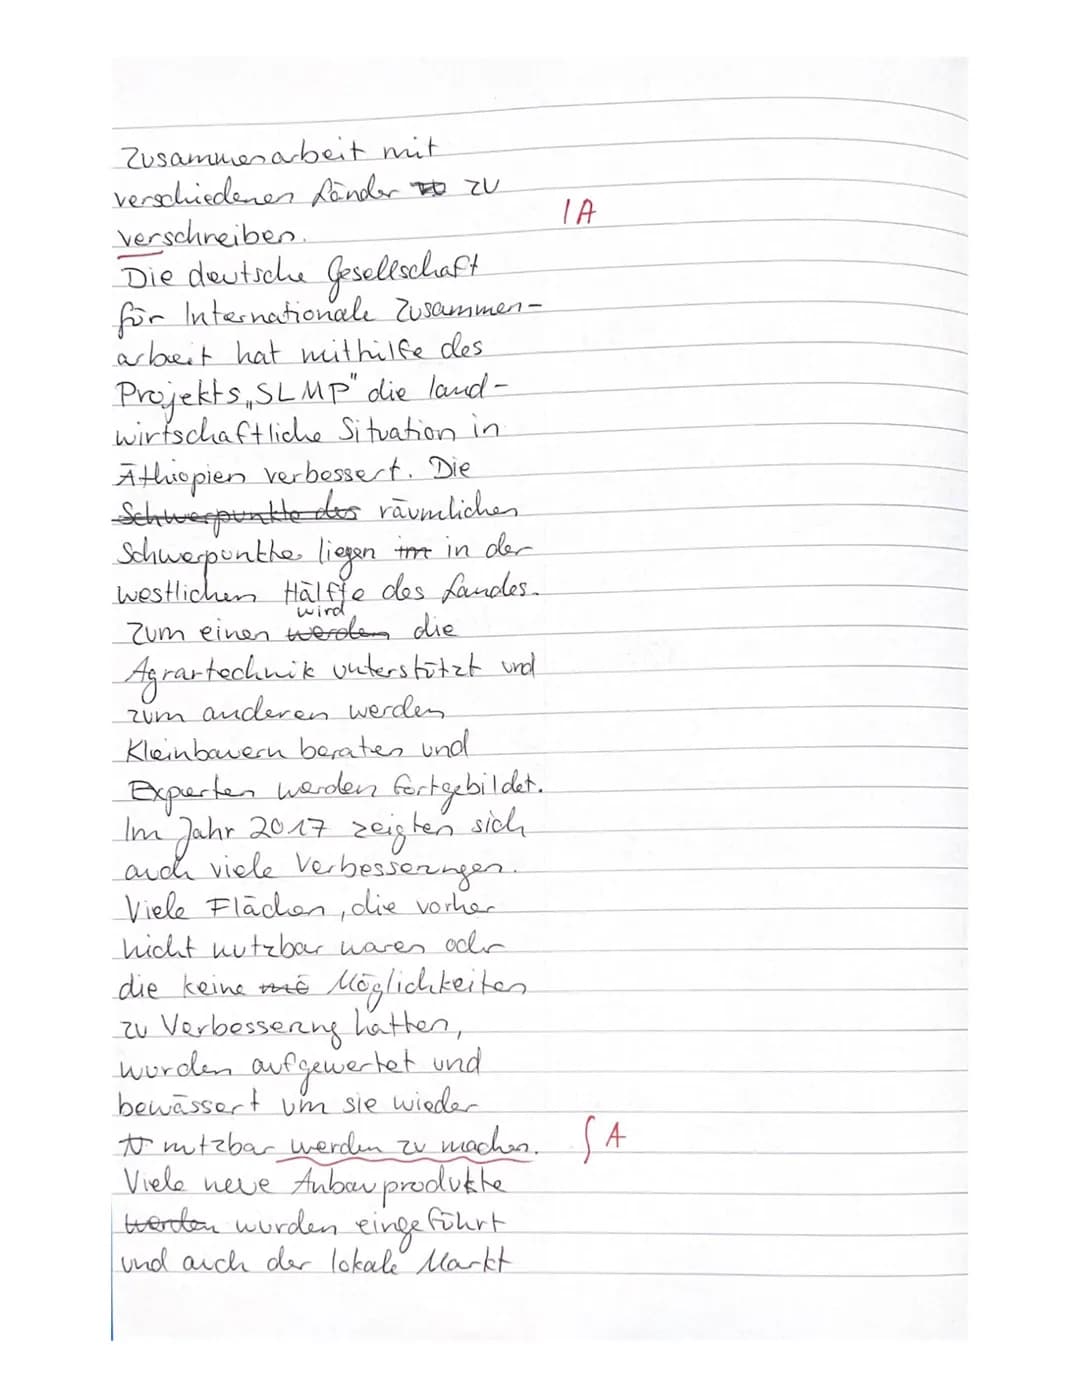 Zusammenarbeit mit
verschiedenen Länder zu
verschreiben.
IA
Die deutsche Gesellschaft
für Internationale Zusammen-
arbeit hat mithilfe des
Projekts „SLMP" die land-
wirtschaftliche Situation in
Äthiopien verbessert. Die
Schwerpunkte des räumlichen
Schwerpunkte liegen im in der
westlichen Hälfte des Landes.
wird
Zum einen werden die
Agrartechnik unterstützt und
zum anderen werden
Kleinbauern beraten und
Experten werden fortgebildet.
Im Jahr 2017 zeigten sich
auch viele Verbesserungen.
Viele Flächen, die vorher
nicht nutzbar waren oder
die keine mö Möglichkeiten
zu Verbesserung hatten,
wurden aufgewertet und
bewässert um sie wieder
nutzbar werden zu machen.
A
Viele neue Anbauprodukte
werden wurden eingeführt
und auch der lokale Markt